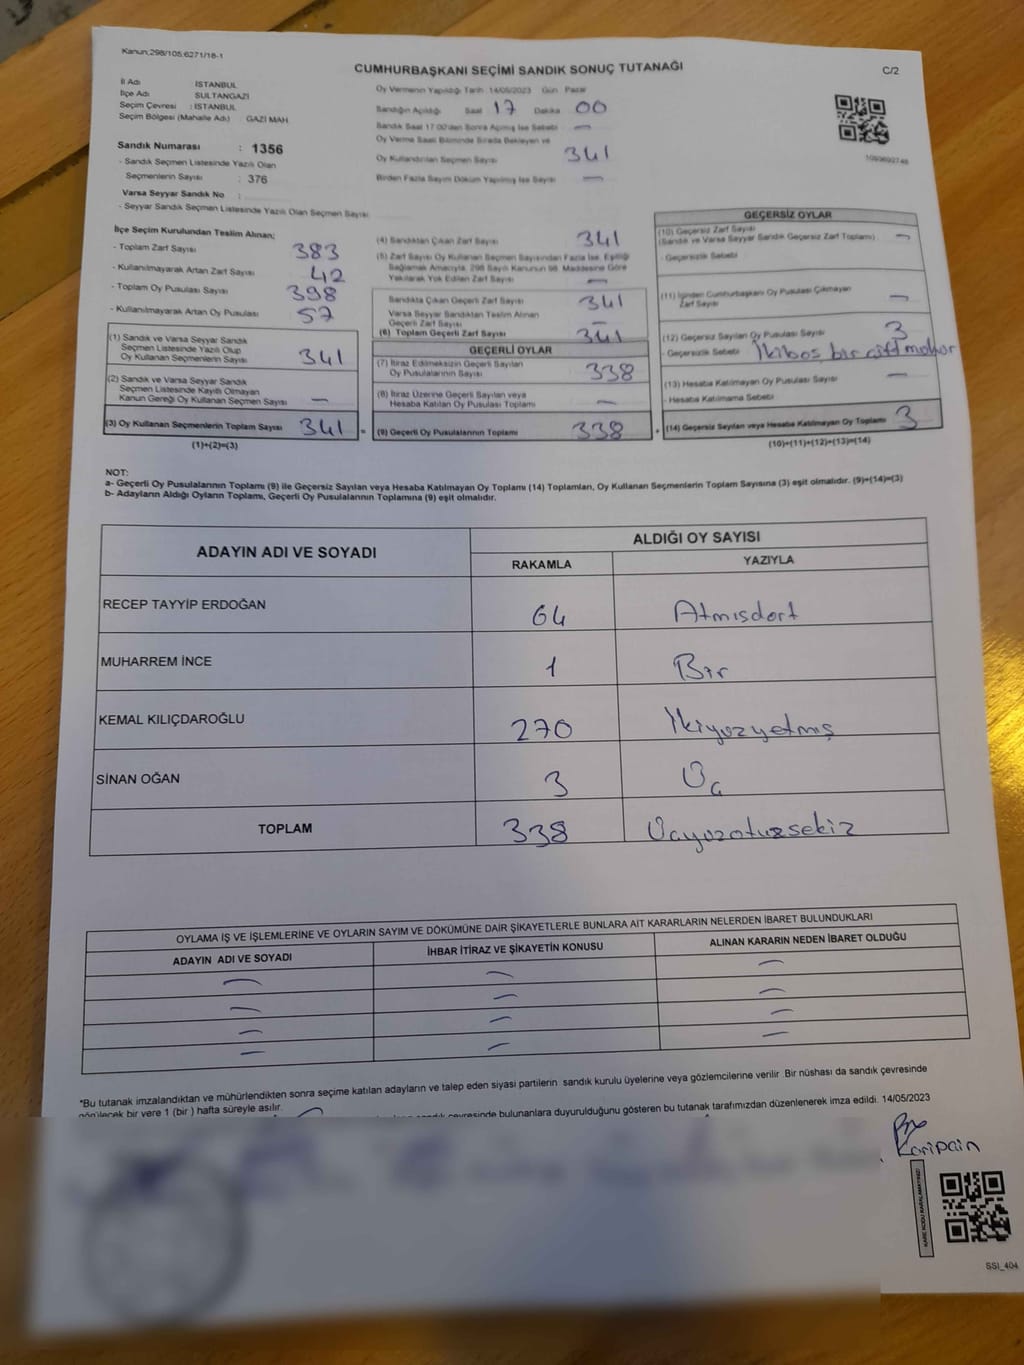 Kanun,298/105.6271/18-1
CUMHURBAŞKANI SEÇİMİ SANDIK SONUÇ TUTANAĞI
C/2
İl Adı İSTANBUL
İlçe Adı SULTANGAZİ
Seçim Çevresi : İSTANBUL
Seçim Bölgesi (Mahalle Adı) GAZİ MAH
Sandık Numarası : 1356
- Sandık Seçmen Listesinde Yazılı Olan
Seçmenlerin Sayısı : 376
Varsa Seyyar Sandık No :
- Seyyar Sandık Seçmen Listesinde Yazılı Olan Seçmen Sayısı
Oy Vermenin Yapıldığı Tarih 14/05/2023 Gün Pazar
Sandığın Açıldığı Saat 17 Dakika 00
Sandık Saat 17.00'den Sonra Açılmış İse Sebebi —
Oy Verme Saati Bitiminde Sırada Bekleyen ve
Oy Kullandırılan Seçmen Sayısı 341
Birden Fazla Sayım Döküm Yapılmış İse Sayısı —
1090692746
İlçe Seçim Kurulundan Teslim Alınan;
- Toplam Zarf Sayısı 383
- Kullanılmayarak Artan Zarf Sayısı 42
- Toplam Oy Pusulası Sayısı 398
- Kullanılmayarak Artan Oy Pusulası 57
(1) Sandık ve Varsa Seyyar Sandık
Seçmen Listesinde Yazılı Olup
Oy Kullanan Seçmenlerin Sayısı 341
(2) Sandık ve Varsa Seyyar Sandık
Seçmen Listesinde Kayıtlı Olmayan
Kanun Gereği Oy Kullanan Seçmen Sayısı —
(3) Oy Kullanan Seçmenlerin Toplam Sayısı 341 =
(1)+(2)=(3)
(4) Sandıktan Çıkan Zarf Sayısı 341
(5) Zarf Sayısı Oy Kullanan Seçmen Sayısından Fazla İse, Eşitliği
Sağlamak Amacıyla, 298 Sayılı Kanunun 98. Maddesine Göre
Yakılarak Yok Edilen Zarf Sayısı —
Sandıkta Çıkan Geçerli Zarf Sayısı 341
Varsa Seyyar Sandıktan Teslim Alınan
Geçerli Zarf Sayısı —
(6) Toplam Geçerli Zarf Sayısı 341
GEÇERLİ OYLAR
(7) İtiraz Edilmeksizin Geçerli Sayılan
Oy Pusulalarının Sayısı 338
(8) İtiraz Üzerine Geçerli Sayılan veya
Hesaba Katılan Oy Pusulası Toplamı —
(9) Geçerli Oy Pusulalarının Toplamı 338 +
GEÇERSİZ OYLAR
(10) Geçersiz Zarf Sayısı
(Sandık ve Varsa Seyyar Sandık Geçersiz Zarf Toplamı) —
- Geçersizlik Sebebi
(11) İçinden Cumhurbaşkanı Oy Pusulası Çıkmayan
Zarf Sayısı —
(12) Geçersiz Sayılan Oy Pusulası Sayısı 3
- Geçersizlik Sebebi İkiboş bir çift mühür
(13) Hesaba Katılmayan Oy Pusulası Sayısı —
- Hesaba Katılmama Sebebi
(14) Geçersiz Sayılan veya Hesaba Katılmayan Oy Toplamı 3
(10)+(11)+(12)+(13)=(14)
NOT:
a- Geçerli Oy Pusulalarının Toplamı (9) ile Geçersiz Sayılan veya Hesaba Katılmayan Oy Toplamı (14) Toplamları, Oy Kullanan Seçmenlerin Toplam Sayısına (3) eşit olmalıdır. (9)+(14)=(3)
b- Adayların Aldığı Oyların Toplamı, Geçerli Oy Pusulalarının Toplamına (9) eşit olmalıdır.
ADAYIN ADI VE SOYADI
ALDIĞI OY SAYISI
RAKAMLA YAZIYLA
RECEP TAYYİP ERDOĞAN 64 Atmışdört
MUHARREM İNCE 1 Bir
KEMAL KILIÇDAROĞLU 270 İkiyüzyetmiş
SİNAN OĞAN 3 Üç
TOPLAM 338 Üçyüzotuzsekiz
OYLAMA İŞ VE İŞLEMLERİNE VE OYLARIN SAYIM VE DÖKÜMÜNE DAİR ŞİKAYETLERLE BUNLARA AİT KARARLARIN NELERDEN İBARET BULUNDUKLARI
ADAYIN ADI VE SOYADI İHBAR İTİRAZ VE ŞİKAYETİN KONUSU ALINAN KARARIN NEDEN İBARET OLDUĞU
— — —
— — —
— — —
— — —
*Bu tutanak imzalandıktan ve mühürlendikten sonra seçime katılan adayların ve talep eden siyasi partilerin sandık kurulu üyelerine veya gözlemcilerine verilir. Bir nüshası da sandık çevresinde
görülecek bir yere 1 (bir ) hafta süreyle asılır.
sandık çevresinde bulunanlara duyurulduğunu gösteren bu tutanak tarafımızdan düzenlenerek imza edildi. 14/05/2023
KARE KODU KARALAMAYINIZ!
SSİ_404